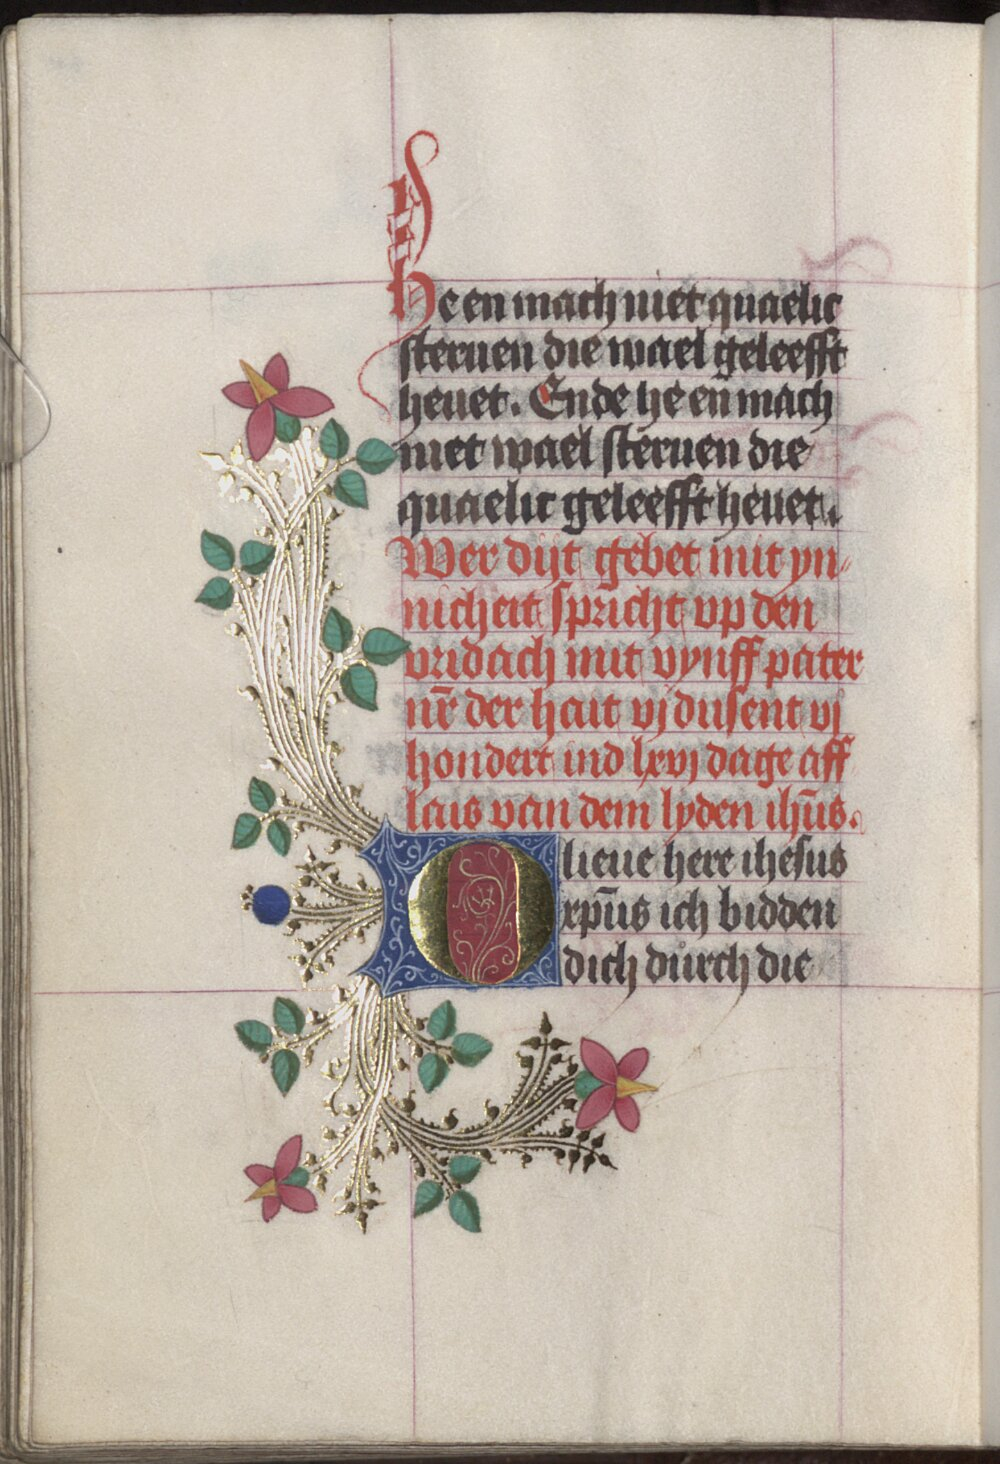 He en mach niet quaelic
steruen die wael geleefft
heuet. Ende he en mach
niet wael steruen die
quaelic geleefft heuet.
Wer dijt gebet mit yn¬
nicheit spricht vp den
vridach mit vynff pater
nr̄ der hait vj dusent vj
hondert ind lxvj dage aff
lais van dem lyden ihūs.
O lieue here ihesus
xpūs ich bidden
dich durch die